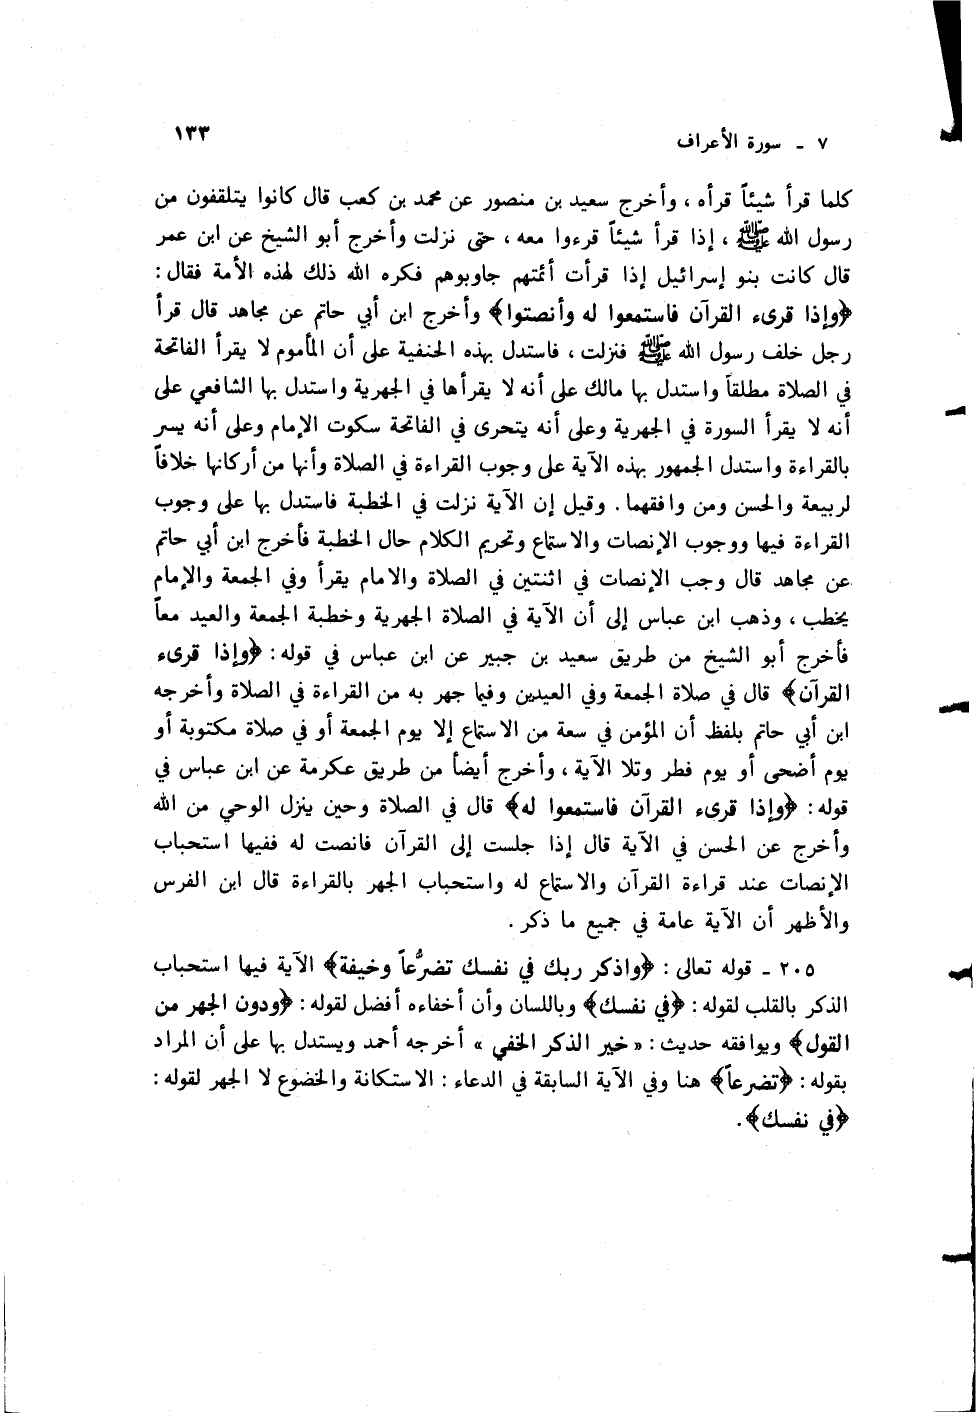 ٧ ـ سورة الأعراف ١٣٣
كلما قرأ شيئاً قرأه ، وأخرج سعيد بن منصور عن محمد بن كعب قال كانوا يتلقفون من
رسول الله ﷺ ، إذا قرأ شيئاً قرءوا معه ، حتى نزلت وأخرج أبو الشيخ عن ابن عمر
قال كانت بنو إسرائيل إذا قرأت أئمتهم جاوبوهم فكره الله ذلك لهذه الأمة فقال :
﴿وإذا قرىء القرآن فاستمعوا له وأنصتوا﴾ وأخرج ابن أبي حاتم عن مجاهد قال قرأ
رجل خلف رسول الله ﷺ فنزلت ، فاستدل بهذه الحنفية على أن المأموم لا يقرأ الفاتحة
في الصلاة مطلقاً واستدل بها مالك على أنه لا يقرأها في الجهرية واستدل بها الشافعي على
أنه لا يقرأ السورة في الجهرية وعلى أنه يتحرى في الفاتحة سكوت الإمام وعلى أنه يسر
بالقراءة واستدل الجمهور بهذه الآية على وجوب القراءة في الصلاة وأنها من أركانها خلافاً
لربيعة والحسن ومن وافقهما . وقيل إن الآية نزلت في الخطبة فاستدل بها على وجوب
القراءة فيها ووجوب الإنصات والاستماع وتحريم الكلام حال الخطبة فأخرج ابن أبي حاتم
عن مجاهد قال وجب الإنصات في اثنتين في الصلاة والامام يقرأ وفي الجمعة والإمام
يخطب ، وذهب ابن عباس إلى أن الآية في الصلاة الجهرية وخطبة الجمعة والعيد معاً
فأخرج أبو الشيخ من طريق سعيد بن جبير عن ابن عباس في قوله : ﴿وإذا قرىء
القرآن﴾ قال في صلاة الجمعة وفي العيدين وفيما جهر به من القراءة في الصلاة وأخرجه
ابن أبي حاتم بلفظ أن المؤمن في سعة من الاستماع إلا يوم الجمعة أو في صلاة مكتوبة أو
يوم أضحى أو يوم فطر وتلا الآية ، وأخرج أيضاً من طريق عكرمة عن ابن عباس في
قوله : ﴿وإذا قرىء القرآن فاستمعوا له﴾ قال في الصلاة وحين ينزل الوحي من الله
وأخرج عن الحسن في الآية قال إذا جلست إلى القرآن فانصت له ففيها استحباب
الإنصات عند قراءة القرآن والاستماع له واستحباب الجهر بالقراءة قال ابن الفرس
والأظهر أن الآية عامة في جميع ما ذكر .
٢٠٥ ـ قوله تعالى : ﴿واذكر ربك في نفسك تضرُّعاً وخيفة﴾ الآية فيها استحباب
الذكر بالقلب لقوله : ﴿في نفسك﴾ وباللسان وأن أخفاءه أفضل لقوله : ﴿ودون الجهر من
القول﴾ ويوافقه حديث : « خير الذكر الخفي » أخرجه أحمد ويستدل بها على أن المراد
بقوله : ﴿تضرعاً﴾ هنا وفي الآية السابقة في الدعاء : الاستكانة والخضوع لا الجهر لقوله :
﴿في نفسك﴾ .